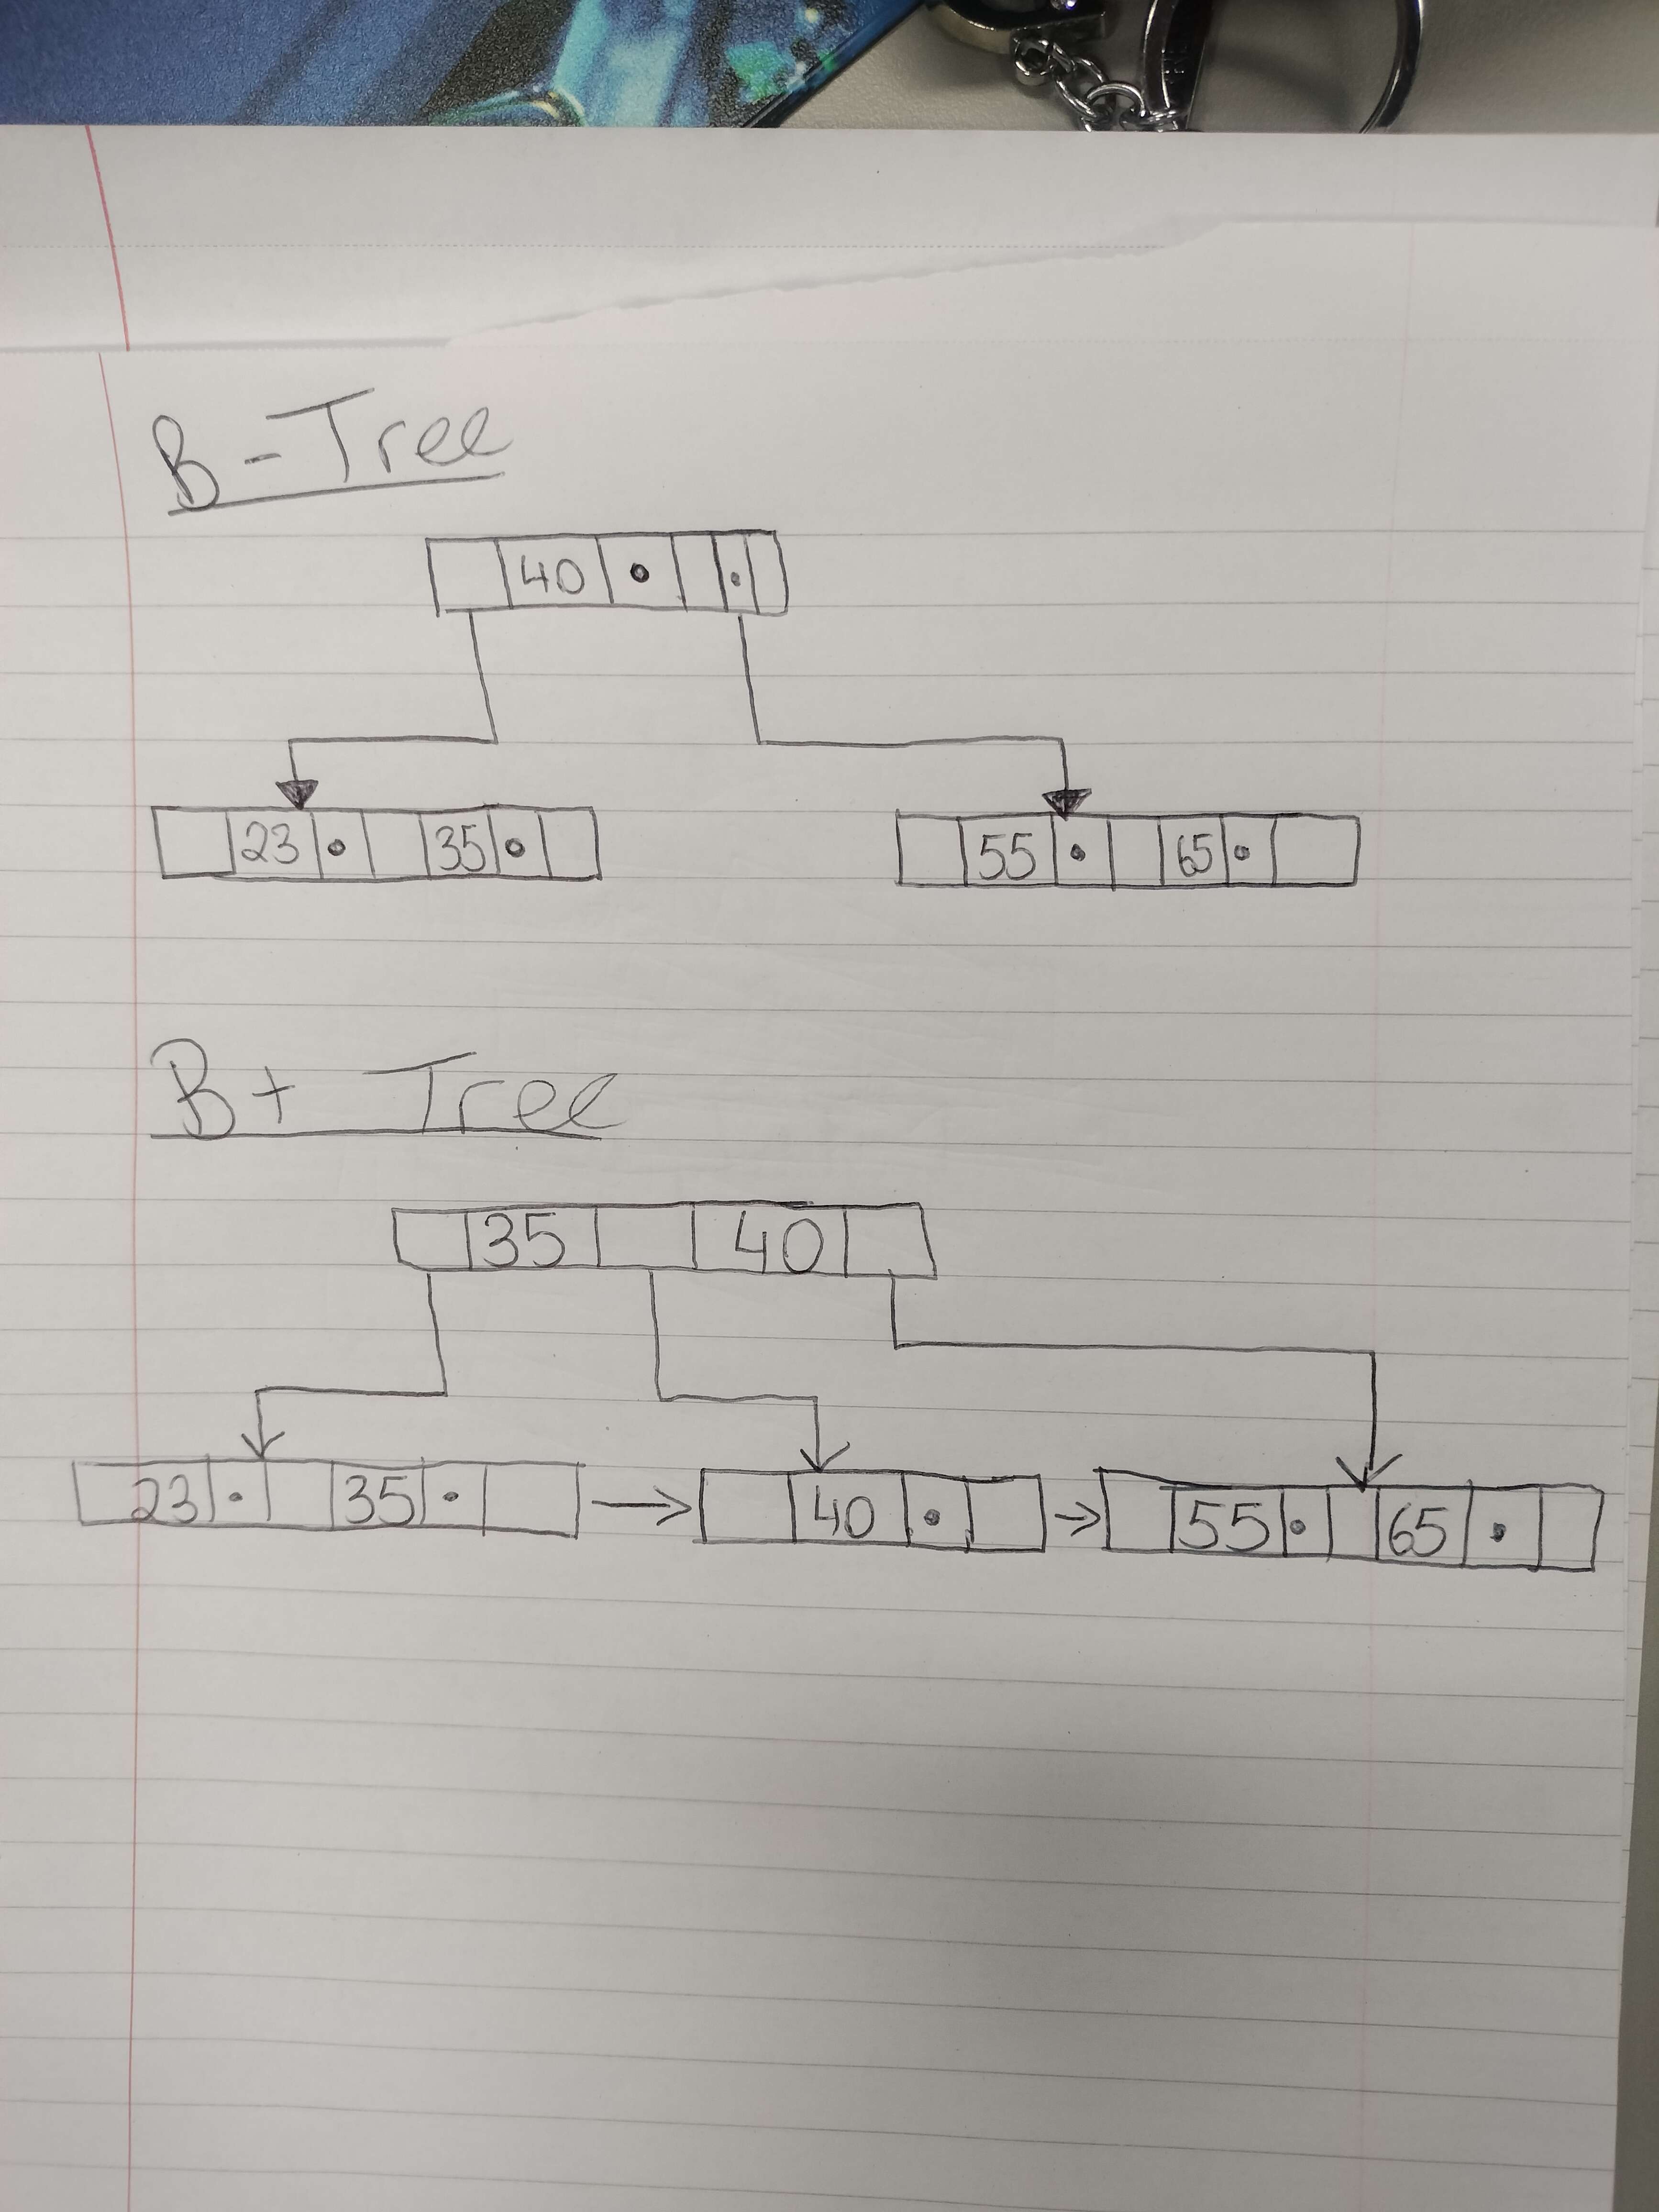 B-Tree
40
23 35 55 65
B+ Tree
35 40
23 35 40 55 65